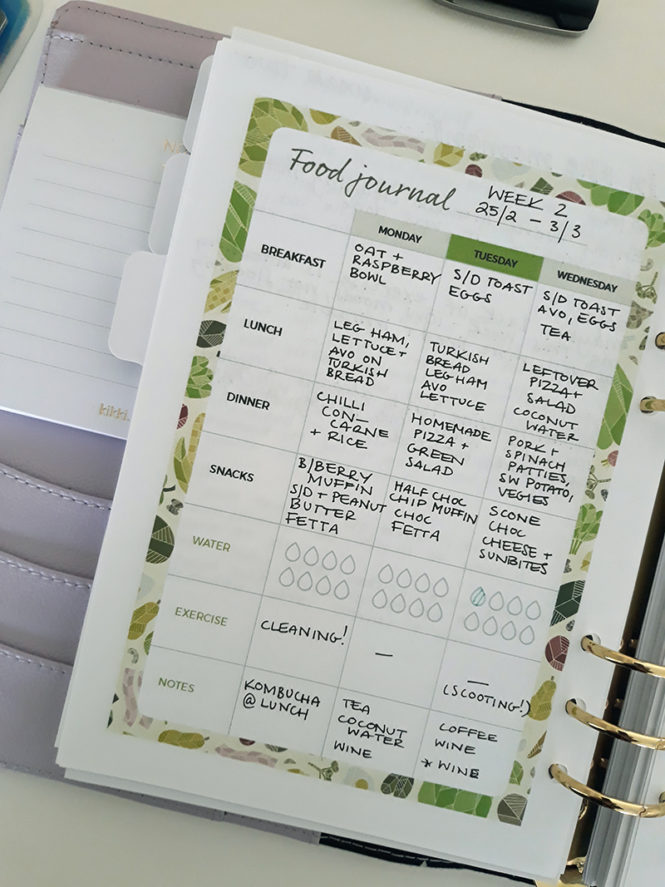 Food journal
WEEK 2
25/2 - 3/3
MONDAY
TUESDAY
WEDNESDAY
BREAKFAST
OAT +
RASPBERRY
BOWL
S/D TOAST
EGGS
S/D TOAST
AVO, EGGS
TEA
LUNCH
LEG HAM,
LETTUCE +
AVO ON
TURKISH
BREAD
TURKISH
BREAD
LEG HAM
AVO
LETTUCE
LEFTOVER
PIZZA +
SALAD
COCONUT
WATER
DINNER
CHILLI
CON
CARNE
+ RICE
HOMEMADE
PIZZA +
GREEN
SALAD
PORK +
SPINACH
PATTIES,
SW POTATO,
VEGIES
SNACKS
B/BERRY
MUFFIN
S/D + PEANUT
BUTTER
FETTA
HALF CHOC
CHIP MUFFIN
CHOC
FETTA
SCONE
CHOC
CHEESE +
SUNBITES
WATER
EXERCISE
CLEANING!
—
—
(SCOOTING!)
NOTES
KOMBUCHA
@ LUNCH
TEA
COCONUT
WATER
WINE
COFFEE
WINE
* WINE
kikki.